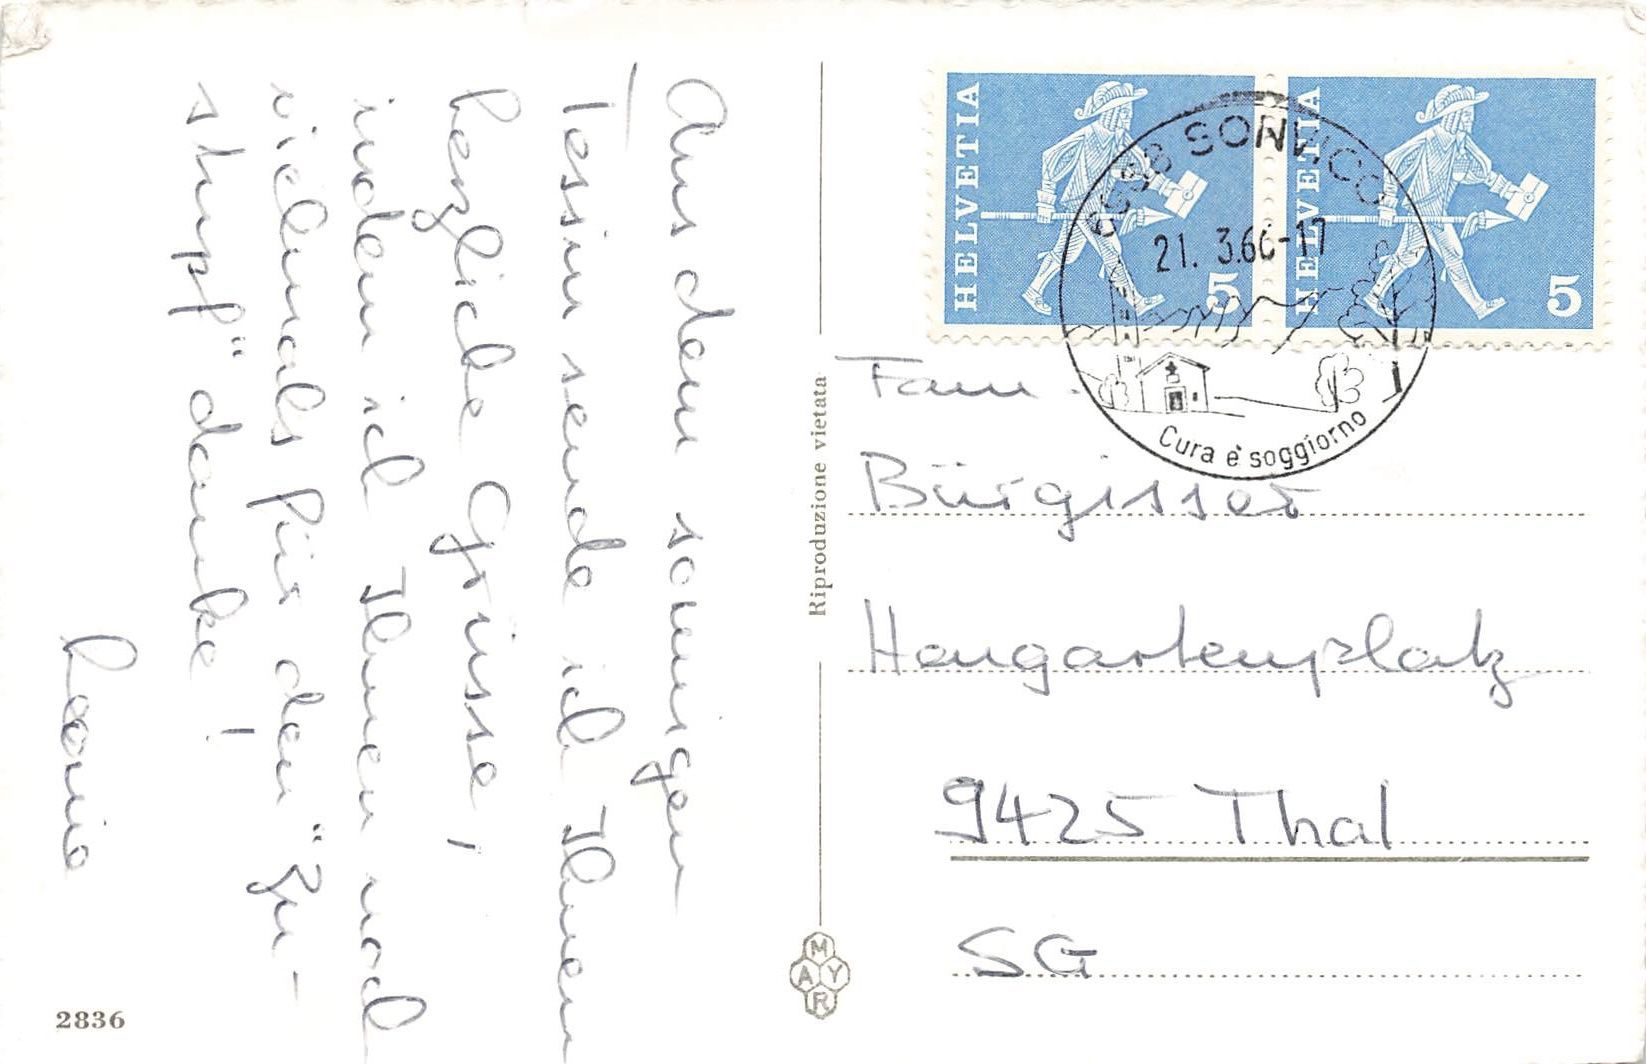 Aus dem sonnigen
Tessin sende ich Ihnen
herzliche Grüsse,
indem ich Ihnen noch
vielmals für den "Zu-
stupf" danke!
Leonie
2836
Riproduzione vietata
MAYR
HELVETIA
5
HELVETIA
5
6968 SONVICO
21. 3.66-17
Cura e soggiorno
Fam.
Bürgisser
Hengartenplatz
9425 Thal
SG